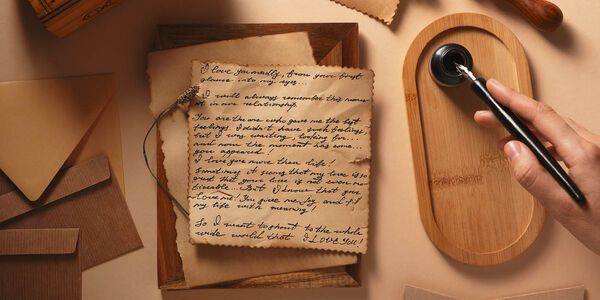 I love you madly, from your first
glance into my eyes...
I will always remember this
in our relationship.
You are the one who gave me the best
feelings. I didn't have such feelings,
but I was waiting, looking for...
and now the moment has come...
you appeared!
I love you more than life!
Sometimes it seems that my love is so
great that your love is not even no
ticeable... But I know that you
love me! You give me joy and fill
my life with meaning!
So I want to shout to the whole
wide world that I LOVE YOU!